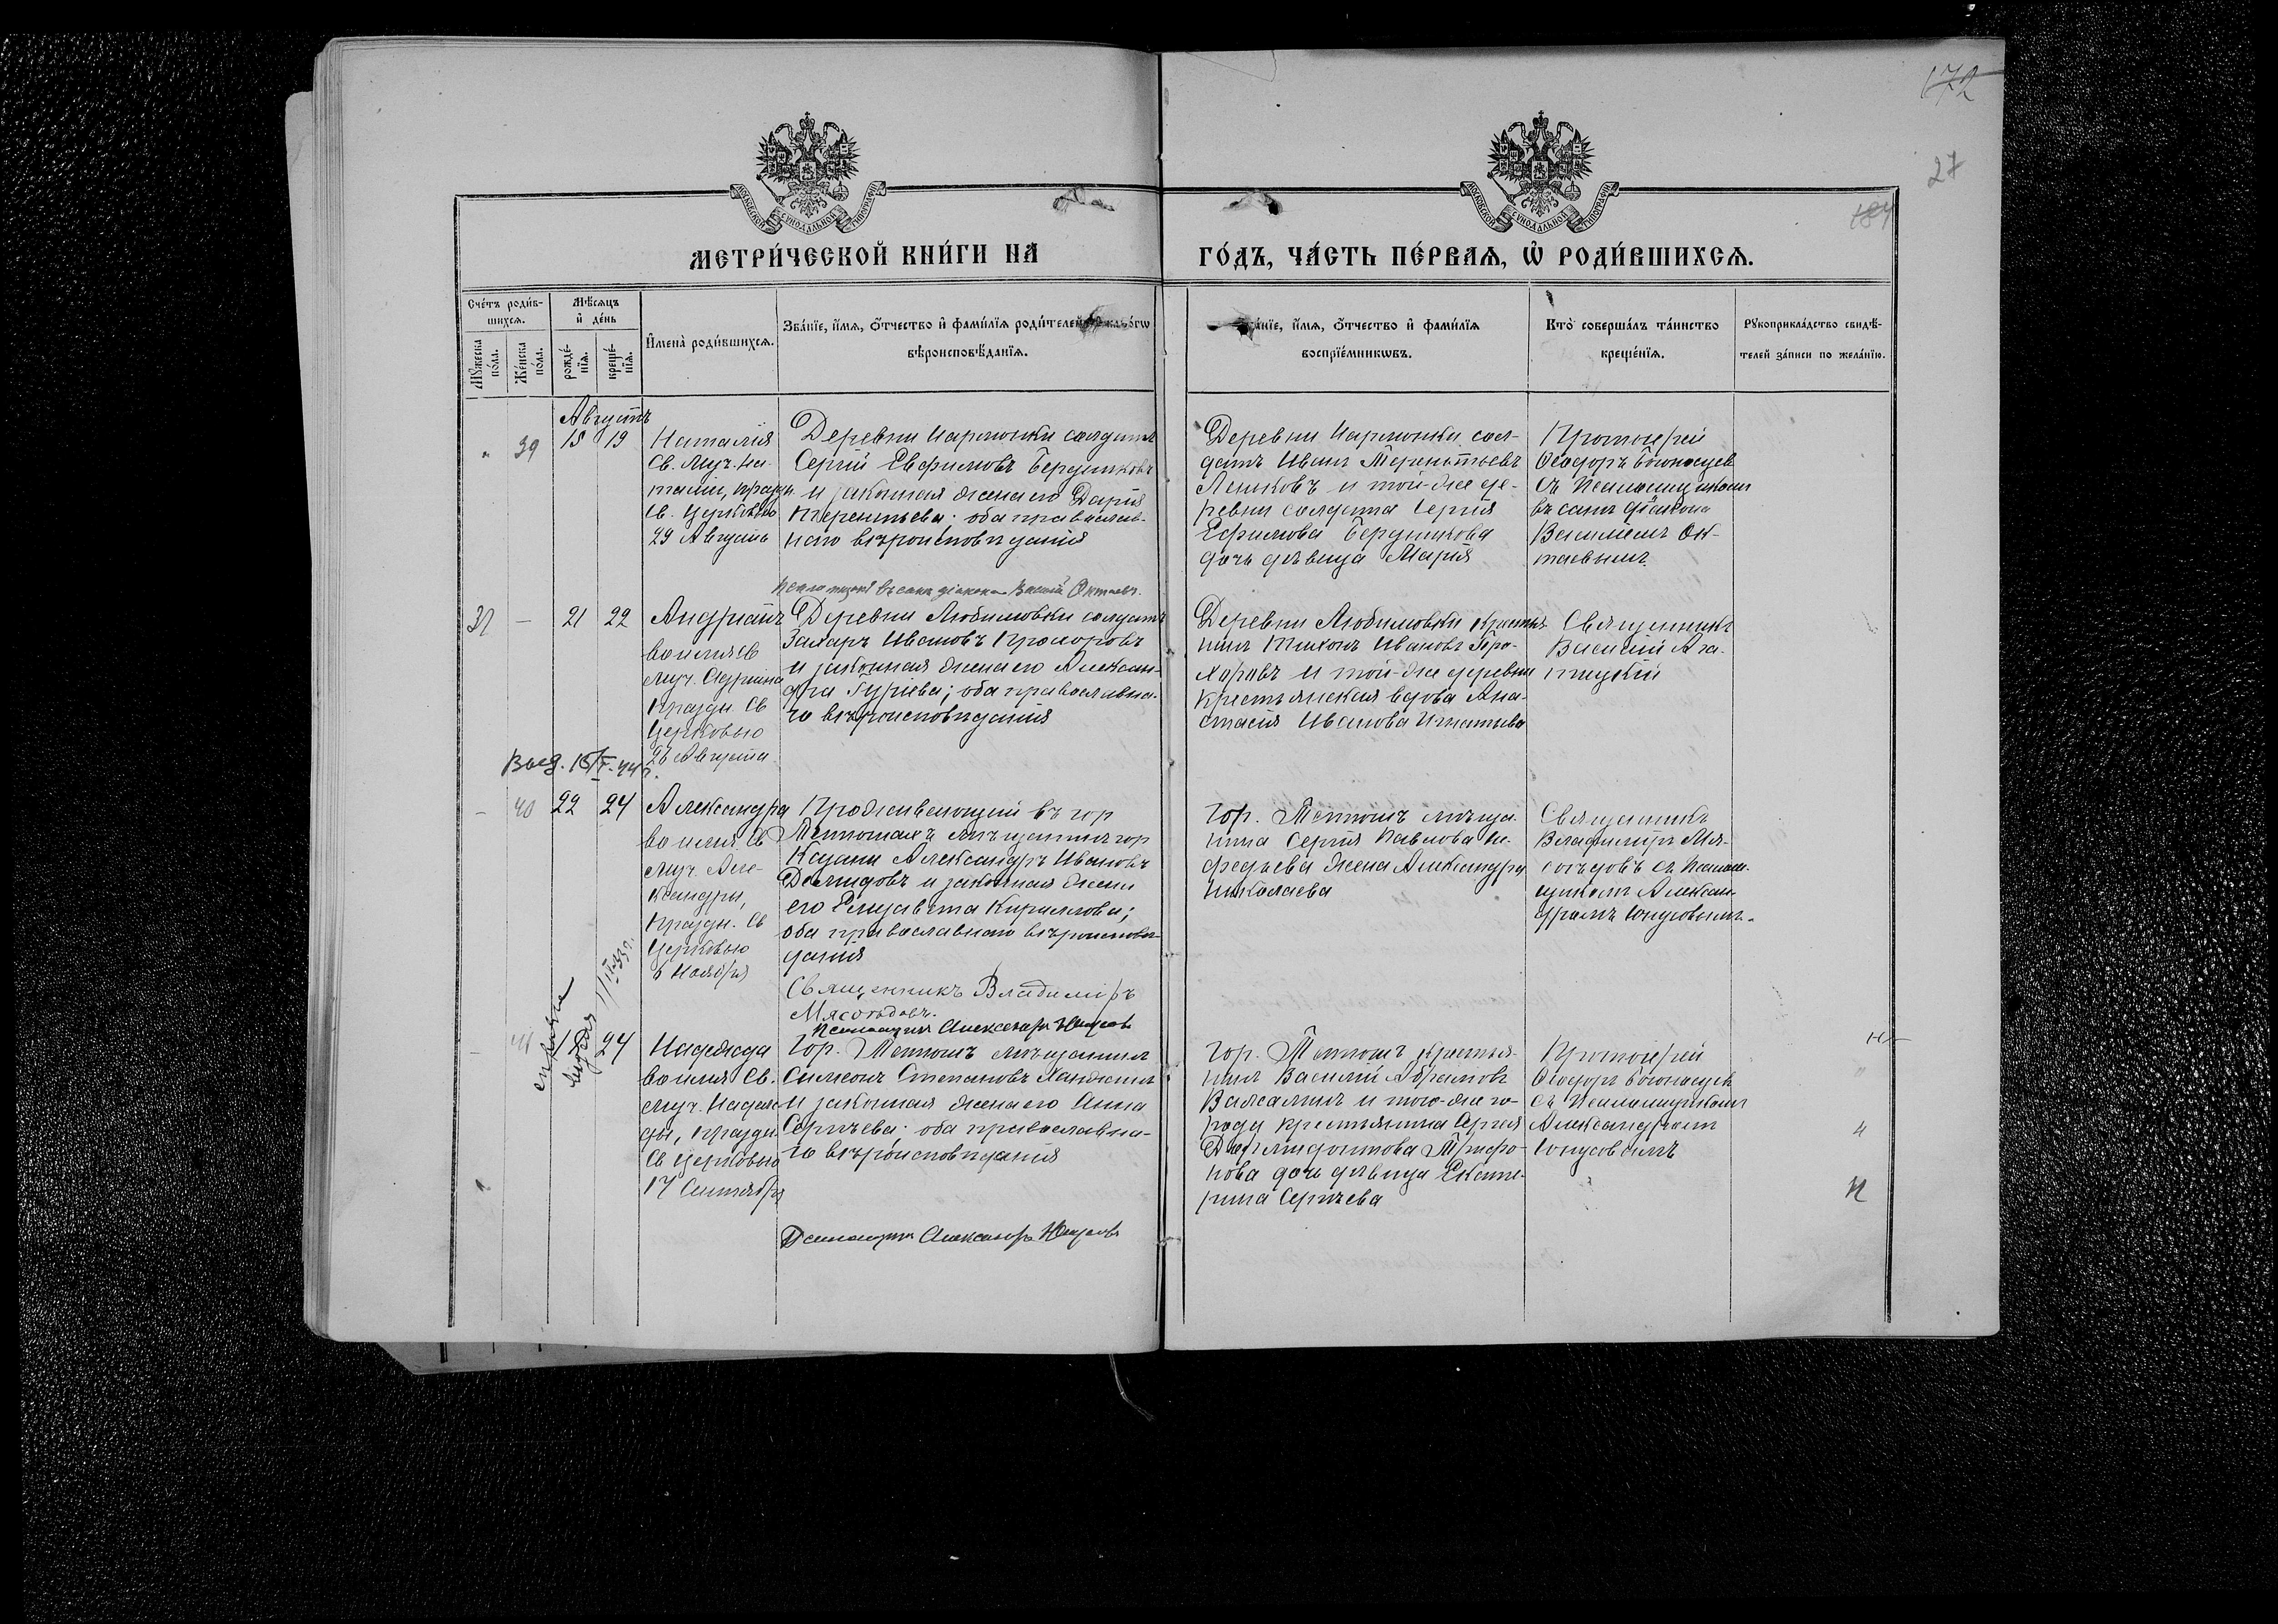 172
27
184
МОСКОВСКОЙ СѴНОДАЛЬНОЙ ТИПОГРАФІИ
МОСКОВСКОЙ СѴНОДАЛЬНОЙ ТИПОГРАФІИ
МЕТРИ́ЧЕСКОЙ КНИ́ГИ НА
ГО́ДЪ, ЧА́СТЬ ПЕ́РВАЯ, Ѡ҆ РОДИ́ВШИХСЯ.
Сче́тъ роди́в-
шихся.
Мꙋ́жеска
по́ла.
Же́нска
по́ла.
Мѣ́сяцъ
и҆ де́нь
рожде́-
нїя.
креще́-
нїя.
И҆мена̀ роди́вшихся.
Зва́нїе, и҆́мя, ѻ҆́тчество и҆ фами́лїя роди́телей
вѣроисповѣ́данїя.
и҆́мя, ѻ҆́тчество и҆ фами́лїя
воспрїе́мникѡвъ.
Кто̀ соверша́лъ та́инство
креще́нїя.
Рꙋкоприкла́дство свидѣ́-
телей за́писи по жела́нїю.
Августъ
39
15 19
Наталія
Св. Муч. На-
таліи, празд.
Св. Церковью
29 Августа
Деревни солдатъ
Сергій Евфимовъ Бердниковъ
и законная жена его Дарія
Терентьева; оба православ-
наго вѣроисповѣданія
Деревни сол-
датъ Иванъ Терентьевъ
и той-же де-
ревни солдата Сергія
Ефимова Бердникова
дочь дѣвица Марія
Протоіерей
Ѳеодоръ Богоносцев
съ Псаломщикомъ
въ санѣ діакона
Василіемъ Ок-
таевымъ.
Псаломщикъ въ санѣ діакона Василій Октаевъ.
37 — 21 22
Андріанъ
во имя св
муч. Адріана
празд. Св
Церковью
26 Августа
Деревни Любимовки солдатъ
Захаръ Ивановъ Прохоровъ
и законная жена его Алексан-
дра Гуріева; оба православна-
го вѣроисповѣданія
Деревни Любимовки крестья
нинъ Тихонъ Ивановъ Про-
хоровъ и той-же деревни
крестьянская вдова Ана-
стасія Иванова Игнатьева
Священникъ
Василій Ага-
тицкій
Выд. 15/V-44г.
– 40 22 24
Александра
во имя Св
муч. Але-
ксандры,
празд. Св
Церковью
6 Ноября
Проживающій въ гор
Тетюшахъ мѣщанинъ гор
Казани Александръ Ивановъ
и законная жена
его Елизавета Кириллова;
оба православнаго вѣроисповѣ-
данія
Гор. Тетюшъ мѣща
нина Сергія Павлова Не-
федьева жена Александра
Николаева
Священникъ
Владиміръ Мя-
соѣдовъ съ Псалом-
щикомъ Алексан-
дромъ Юнусовымъ.
Священникъ Владиміръ
Мясоѣдовъ.
Псаломщикъ Александръ Юнусовъ
справка
выдана
41
24
Надежда
во имя Св.
муч. Надеж-
ды, празд.
Св Церковью
17 Сентября
Гор. Тетюшъ мѣщанинъ
Симеонъ Степановъ
и законная жена его Анна
Сергѣева; оба православна-
го вѣроисповѣданія
Гор. Тетюшъ крестья
нинъ Василій Абрамовъ
и того-же го-
рода крестьянина Сергія
Трифо-
нова дочь дѣвица Екате-
рина Сергѣева
Протоіерей
Ѳеодоръ Богоносцевъ
съ Псаломщикомъ
Александромъ
Юнусовымъ
Псаломщикъ Александръ Юнусовъ